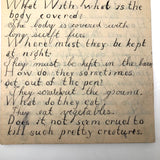 What With what is the
body covered?
The body is covered with
long silky fur.
Where must they be kept
at night?
They must be kept in the barn
How do they sometimes
get out of the pen?
They scratch the ground.
What do they eat?
They eat vegetables.
Does it not seem cruel to
kill such pretty creatures.